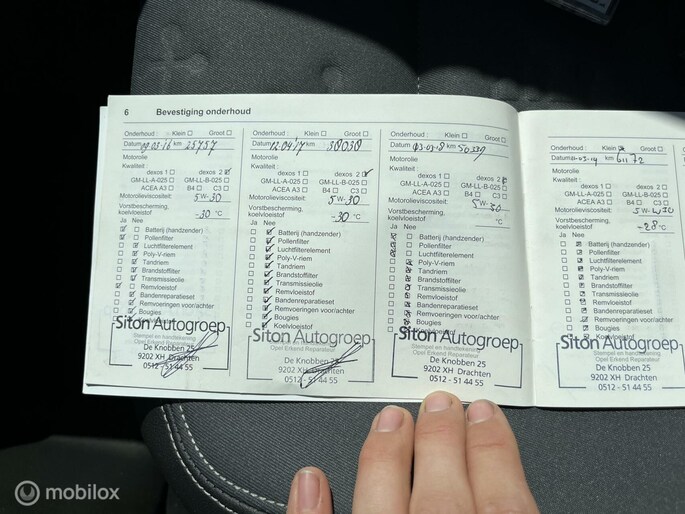 6 Bevestiging onderhoud
Onderhoud : Klein Groot
Datum 09.03.16 km 25757
Motorolie
Kwaliteit :
dexos 1 dexos 2
GM-LL-A-025 GM-LL-B-025
ACEA A3 B4 C3
Motorolieviscositeit: 5W-30
Vorstbescherming,
koelvloeistof -30 °C
Ja Nee
Batterij (handzender)
Pollenfilter
Luchtfilterelement
Poly-V-riem
Tandriem
Brandstoffilter
Transmissieolie
Remvloeistof
Bandenreparatieset
Remvoeringen voor/achter
Bougies
Koelvloeistof
Siton Autogroep
De Knobben 25
9202 XH Drachten
0512 - 51 44 55
Onderhoud : Klein Groot
Datum 12.04.17 km 38038
Motorolie
Kwaliteit :
dexos 1 dexos 2
GM-LL-A-025 GM-LL-B-025
ACEA A3 B4 C3
Motorolieviscositeit: 5W-30
Vorstbescherming,
koelvloeistof -30 °C
Ja Nee
Batterij (handzender)
Pollenfilter
Luchtfilterelement
Poly-V-riem
Tandriem
Brandstoffilter
Transmissieolie
Remvloeistof
Bandenreparatieset
Remvoeringen voor/achter
Bougies
Koelvloeistof
Siton Autogroep
Stempel en handtekening
Opel Erkend Reparateur
De Knobben 25
9202 XH Drachten
0512 - 51 44 55
Onderhoud : Klein Groot
Datum 03-03-18 km
Motorolie
Kwaliteit :
dexos 1 dexos 2
GM-LL-A-025 GM-LL-B-025
ACEA A3 B4 C3
Motorolieviscositeit: 5W-30
Vorstbescherming,
koelvloeistof °C
Ja Nee
Batterij (handzender)
Pollenfilter
Luchtfilterelement
Poly-V-riem
Tandriem
Brandstoffilter
Transmissieolie
Remvloeistof
Bandenreparatieset
Remvoeringen voor/achter
Bougies
Koelvloeistof
Siton Autogroep
Stempel en handtekening
Opel Erkend Reparateur
De Knobben 25
9202 XH Drachten
0512 - 51 44 55
Onderhoud : Klein Groot
Datum km
Motorolie
Kwaliteit :
dexos 1 dexos 2
GM-LL-A-025 GM-LL-B-025
ACEA A3 B4 C3
Motorolieviscositeit:
Vorstbescherming,
koelvloeistof -28 °C
Ja Nee
Batterij (handzender)
Pollenfilter
Luchtfilterelement
Poly-V-riem
Tandriem
Brandstoffilter
Transmissieolie
Remvloeistof
Bandenreparatieset
Remvoeringen voor/achter
Bougies
Koelvloeistof
Siton Autogroep
Stempel en handtekening
Opel Erkend Reparateur
De Knobben 25
9202 XH Drachten
0512 - 51 44 55
mobilox